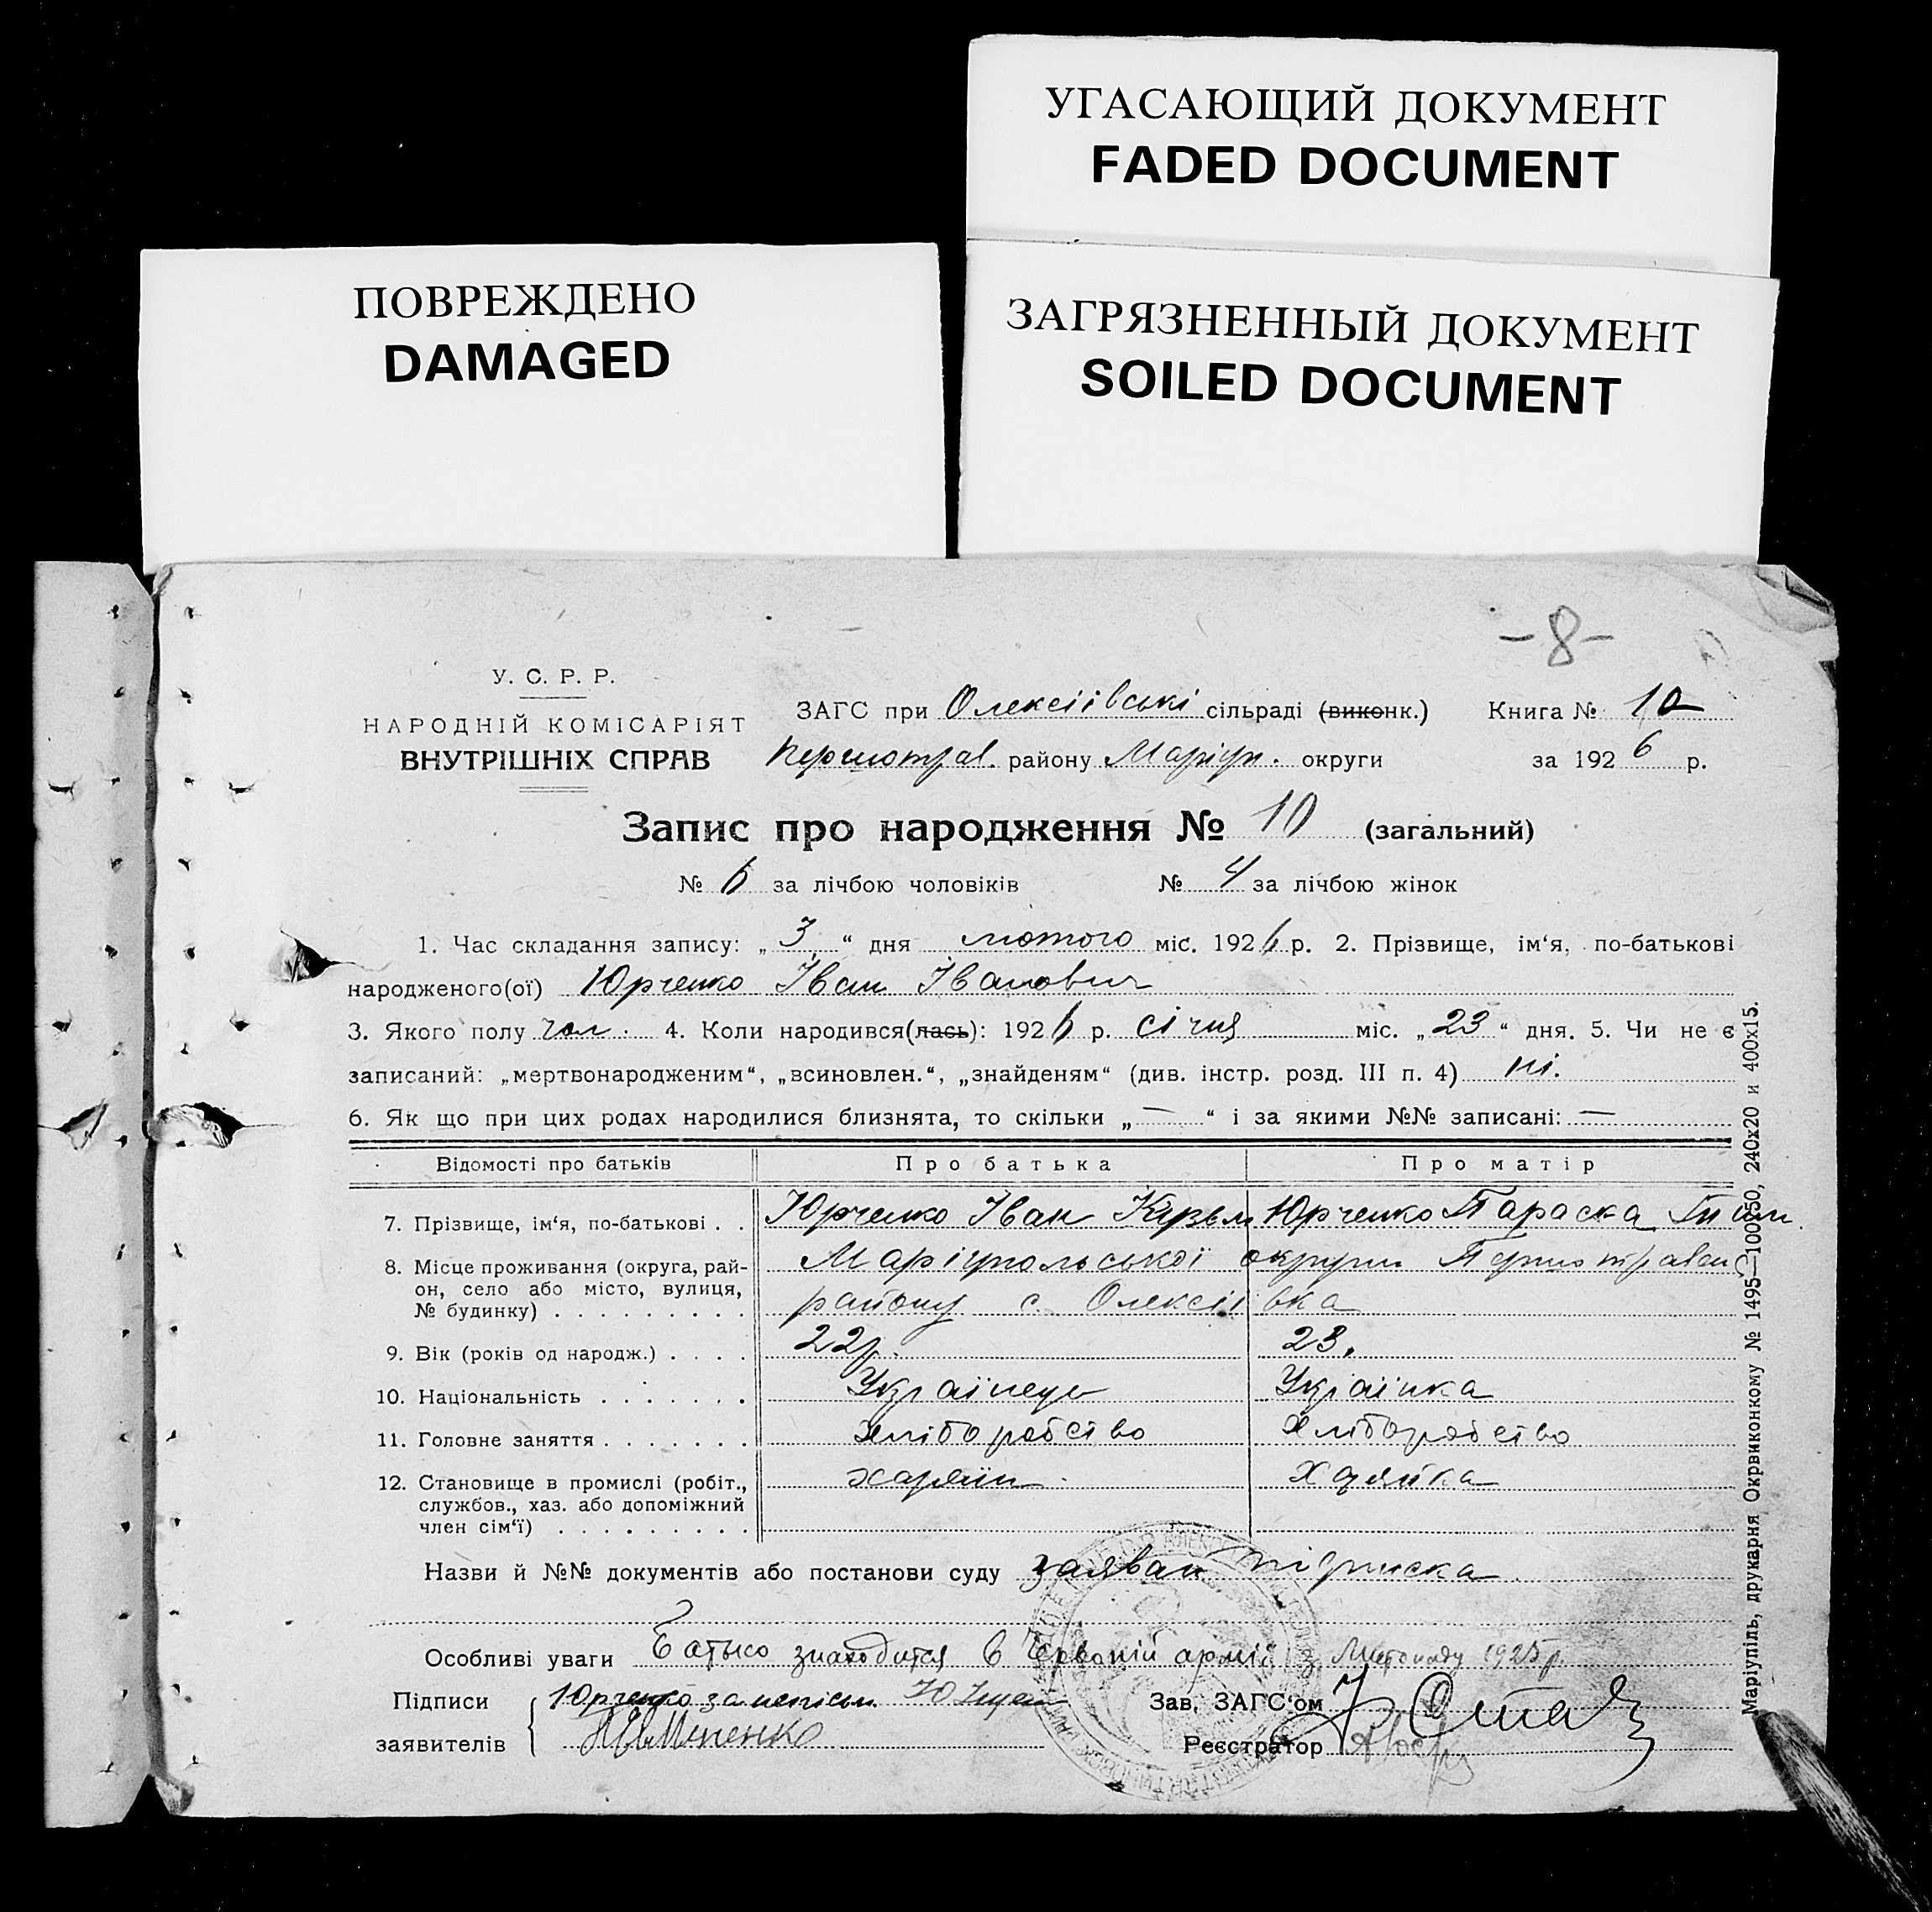 УГАСАЮЩИЙ ДОКУМЕНТ
FADED DOCUMENT
ПОВРЕЖДЕНО
DAMAGED
ЗАГРЯЗНЕННЫЙ ДОКУМЕНТ
SOILED DOCUMENT
-8-
У. С. Р. Р.
НАРОДНІЙ КОМІСАРІЯТ
ВНУТРІШНІХ СПРАВ
ЗАГС при Олексіївські сільраді (виконк.) Книга № 10
Першотрав. району Маріуп. округи за 1926 р.
Запис про народження № 10 (загальний)
№ 6 за лічбою чоловіків № 4 за лічбою жінок
1. Час складання запису: „3“ дня лютого міс. 1926 р. 2. Прізвище, ім‘я, по-батькові
народженого(ої) Юрченко Іван Іванович
3. Якого полу чол. 4. Коли народився(лась): 1926 р. січня міс. „23“ дня. 5. Чи не є
записаний: „мертвонародженим“, „всиновлен.“, „знайденям“ (див. інстр. розд. III п. 4) ні.
6. Як що при цих родах народилися близнята, то скільки „—“ і за якими №№ записані: —
Відомості про батьків Про батька Про матір
7. Прізвище, ім‘я, по-батькові . . Юрченко Іван Кузьм Юрченко Параска
8. Місце проживання (округа, рай- Маріупольської округи Першотравен
он, село або місто, вулиця, району с Олексіївка
№ будинку) . . . . . . . . .
9. Вік (років од народж.) . . . . 22р. 23.
10. Національність . . . . . . . Українець Українка
11. Головне заняття . . . . . . . хліборобство хліборобство
12. Становище в промислі (робіт., хазяїн Хазяйка
службов., хаз. або допоміжний
член сім‘ї) . . . . . . . . .
Назви й №№ документів або постанови суду заяван підписка
Особливі уваги Батько знаходится в Червоній армії з Листопаду 1925 р.
Підписи Юрченко за неписьм. Зав. ЗАГС‘ом
заявителів Реєстратор
Маріупіль, друкарня Окрвиконкому № 1495—100х50, 240х20 и 400х15.